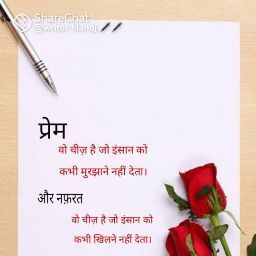 ShareChat
@Writer Manoj
प्रेम
वो चीज़ है जो इंसान को
कभी मुरझाने नहीं देता।
और नफ़रत
वो चीज़ है जो इंसान को
कभी खिलने नहीं देता।